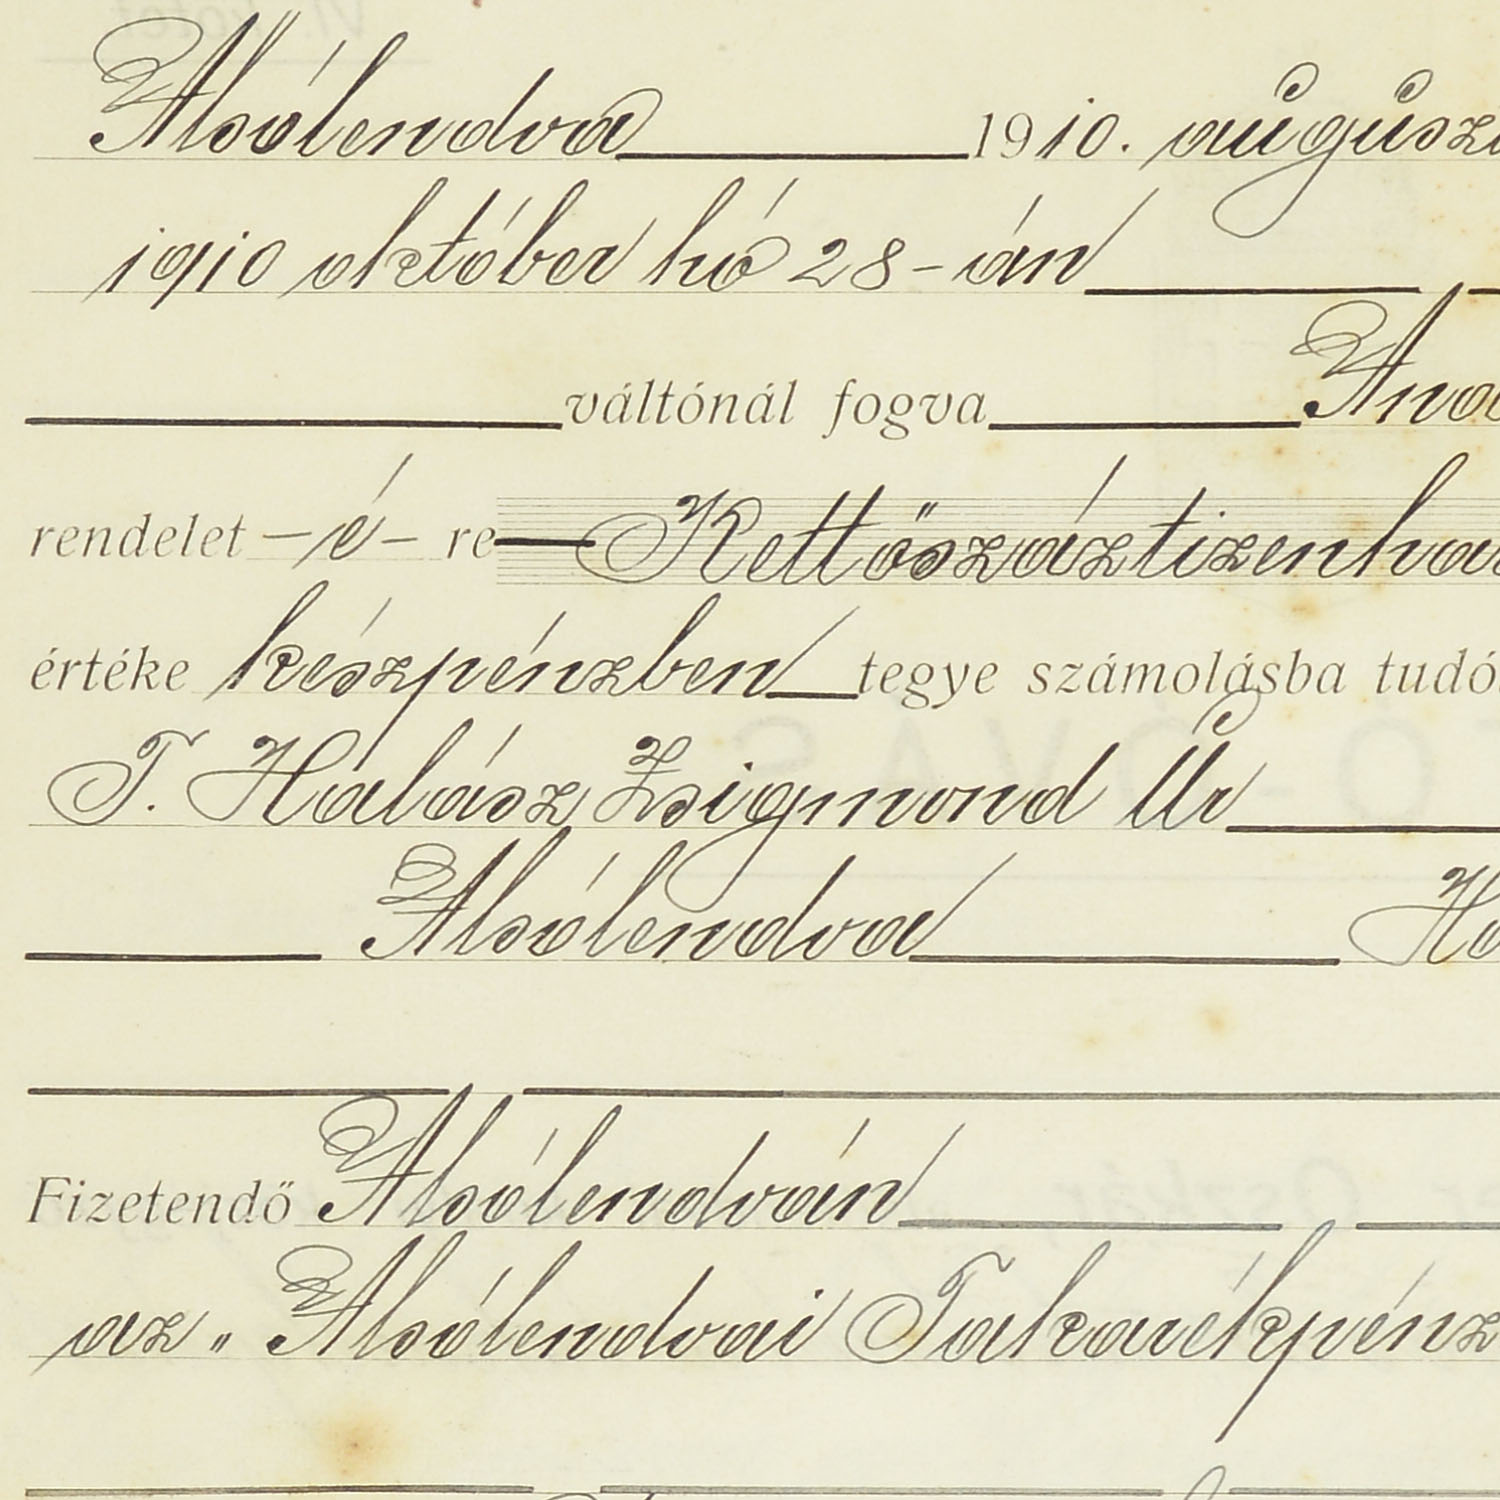 Alsólendva 1910. augusz
1910 október hó 28-án
váltónál fogva
rendelet -é- re Kettőszáztizenha
értéke készpénzben tegye számolásba tudó
T. Halász Zsigmond Úr
Alsólendva
Fizetendő Alsólendván
az „Alsólendvai Takarékpénz